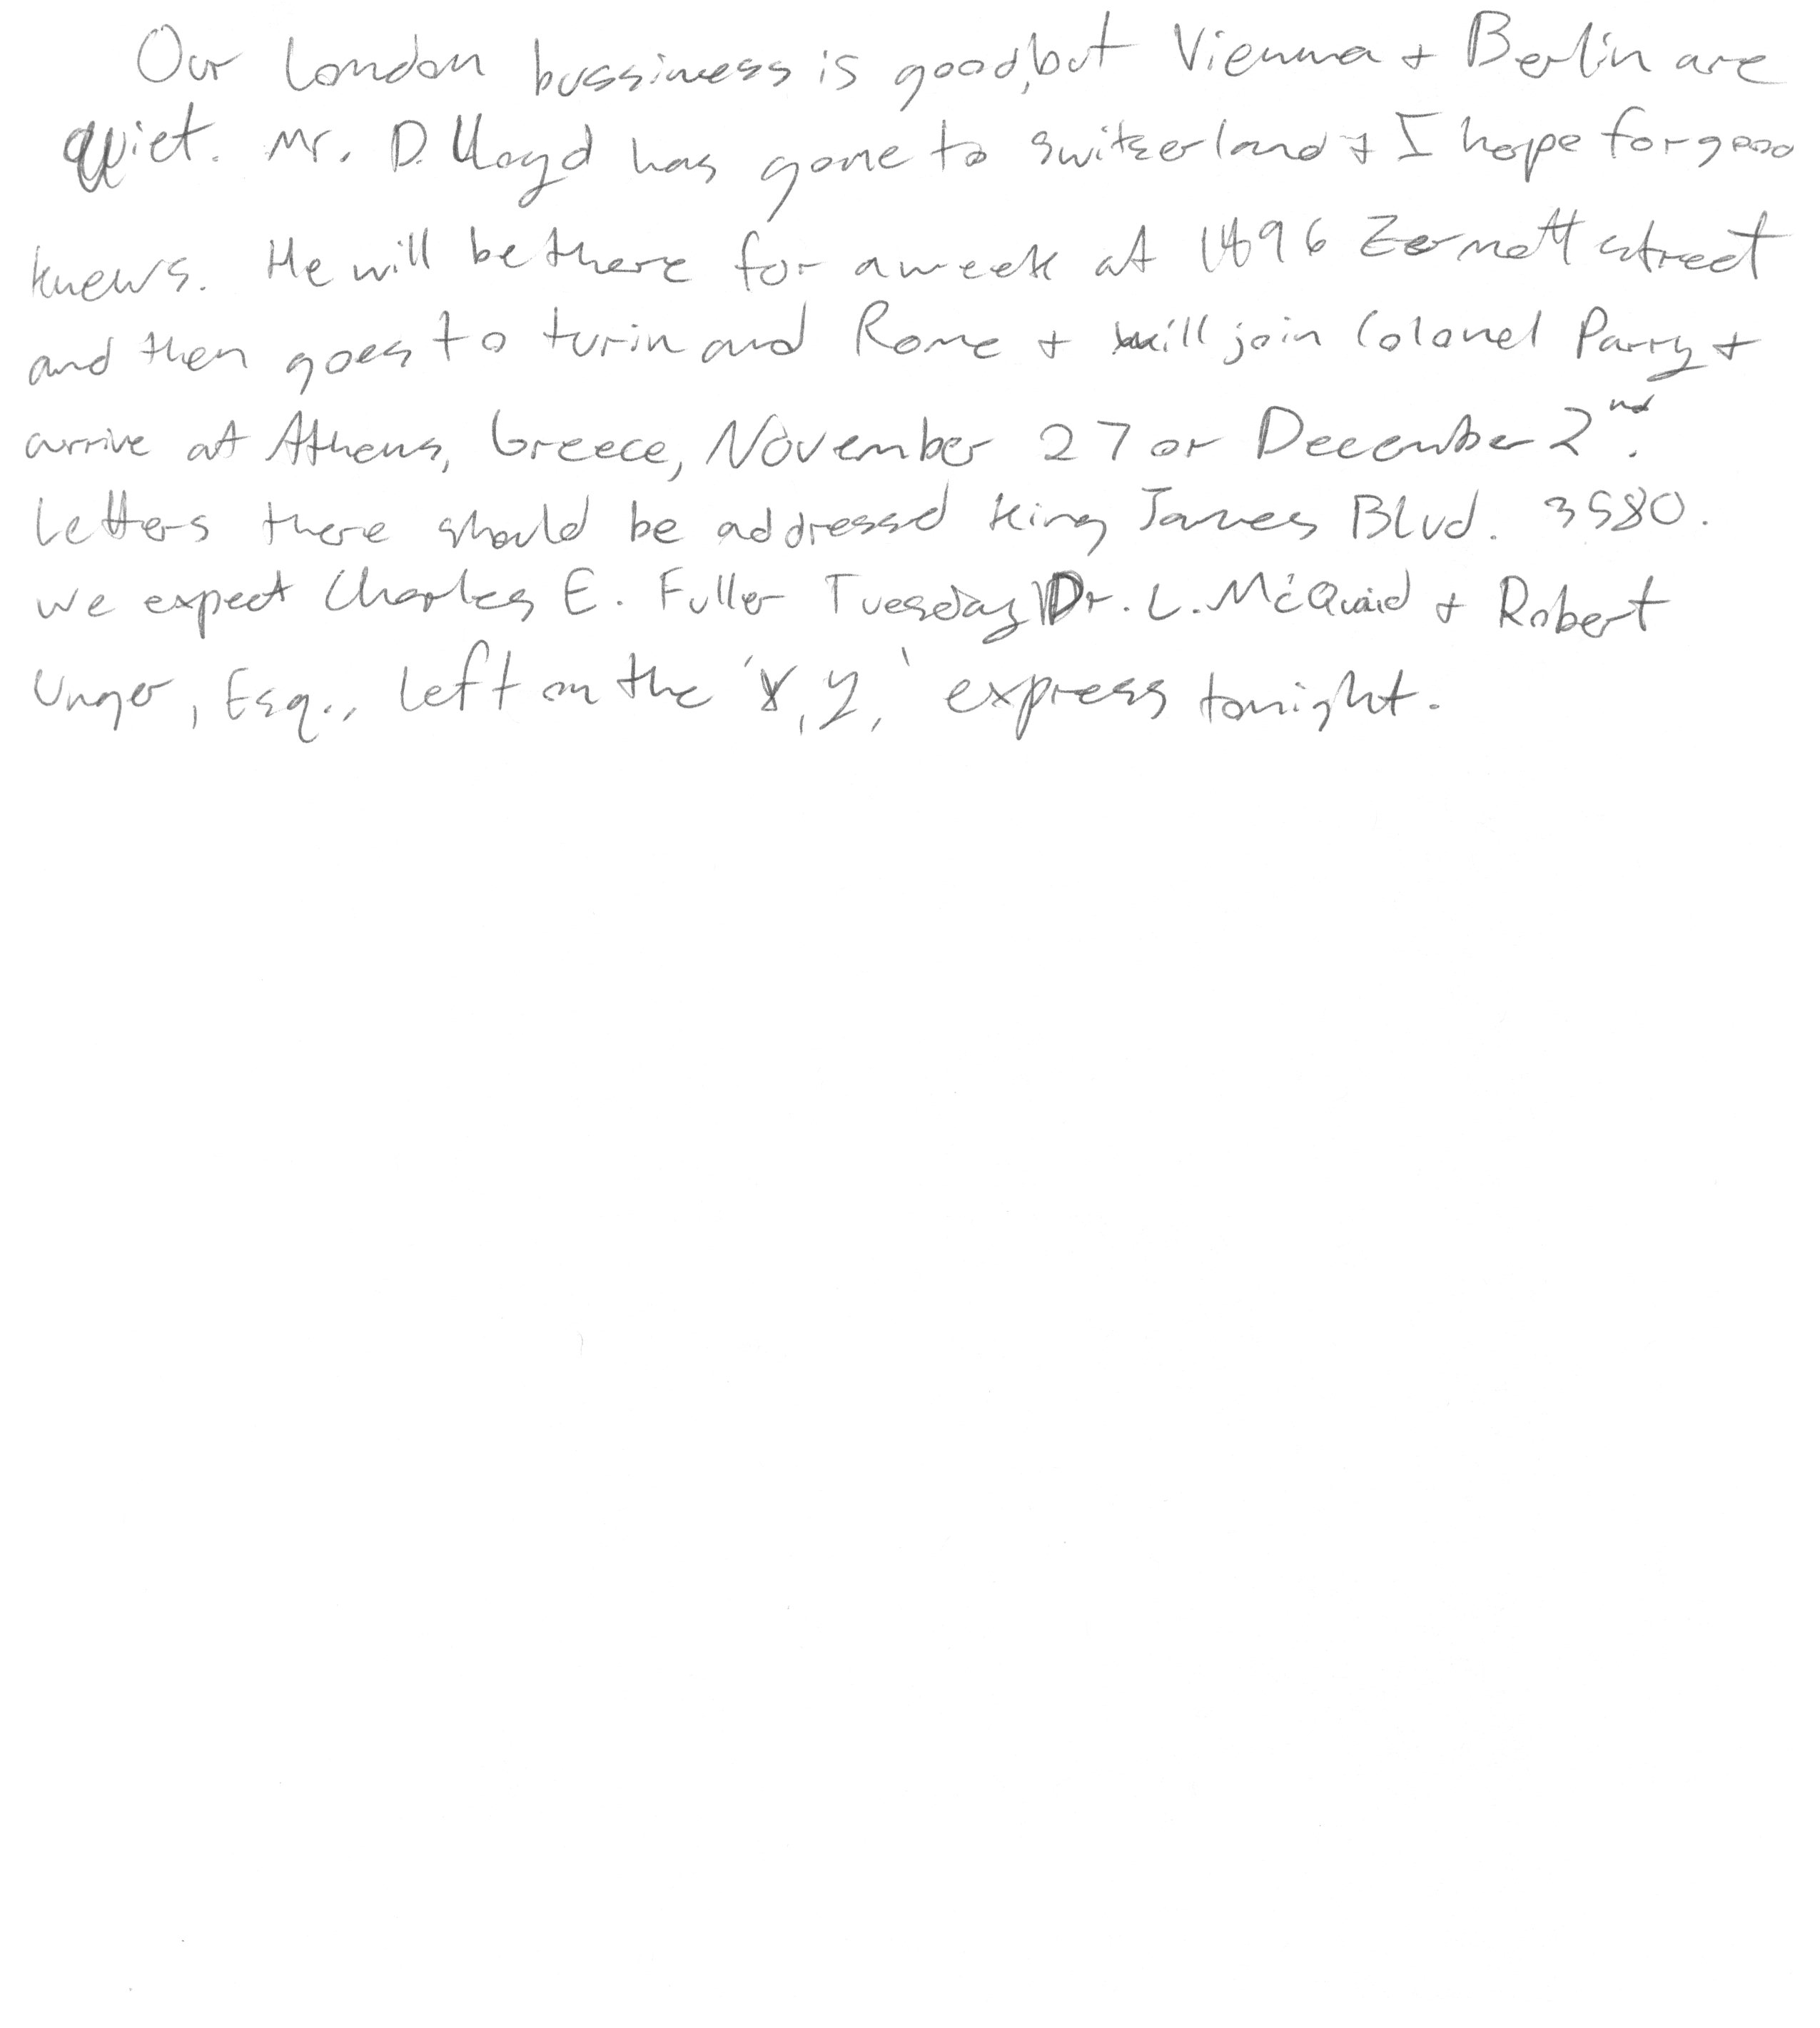 Our London bussiness is good, but Vienna + Berlin are
quiet. Mr. D. Lloyd has gone to switzerland + I hope for good
knews. He will be there for a week at 1496 Zermott street
and then goes to turin and Rome + will join Colonel Parry +
arrive at Athens, Greece, November 27 or December 2nd.
Letters there should be addressed King James Blvd. 3580.
We expect Charles E. Fuller Tuesday Dr. L. McQuaid + Robert
Unger, Esq., left on the 'X, Y,' express tonight.